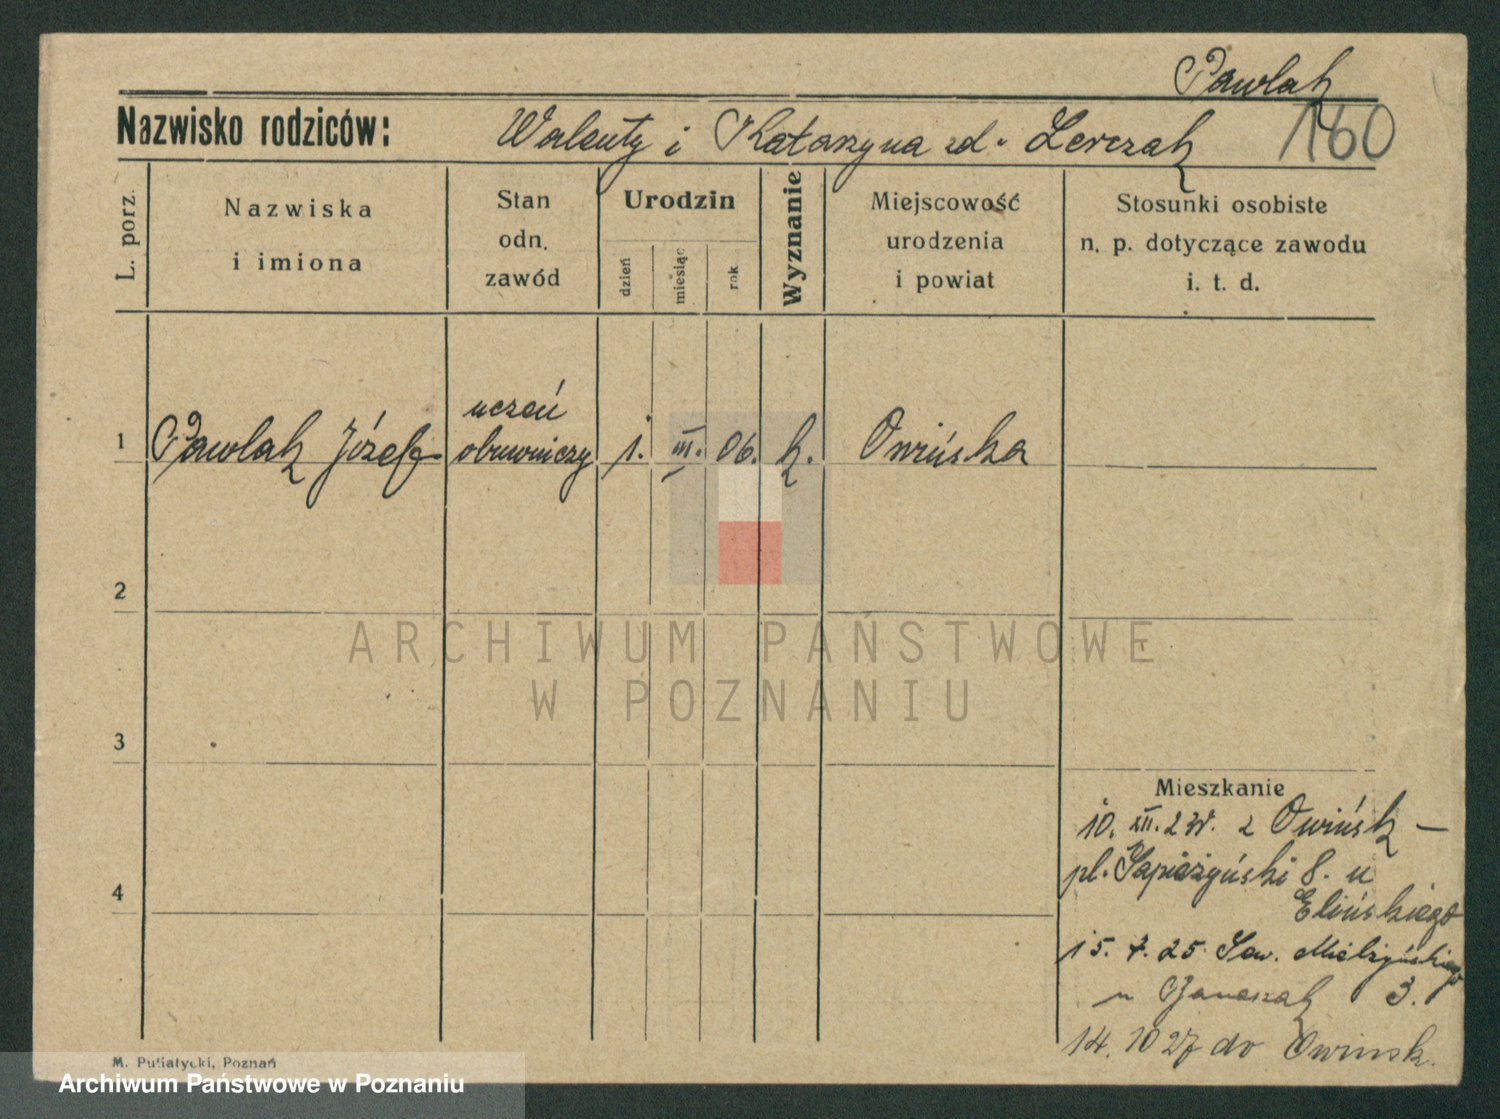 Pawlak
Nazwisko rodziców: Walenty i Katarzyna zd. Lerczak 160
L. porz.
Nazwiska i imiona
Stan odn. zawód
Urodzin
dzień
miesiąc
rok
Wyznanie
Miejscowość urodzenia i powiat
Stosunki osobiste n. p. dotyczące zawodu i. t. d.
1 Pawlak Józef uczeń obuwniczy 1. III. 06. k. Owińska
2
ARCHIWUM PAŃSTWOWE
W POZNANIU
3
Mieszkanie
10. XII. 23r. z Owińsk —
pl. Sapieżyński 8. u
Elińskiego
4
15. 7. 25 Sew. Mielżyńskiego
u 3.
14. 10 27 do Owinsk.
M. Putiatycki, Poznań
Archiwum Państwowe w Poznaniu